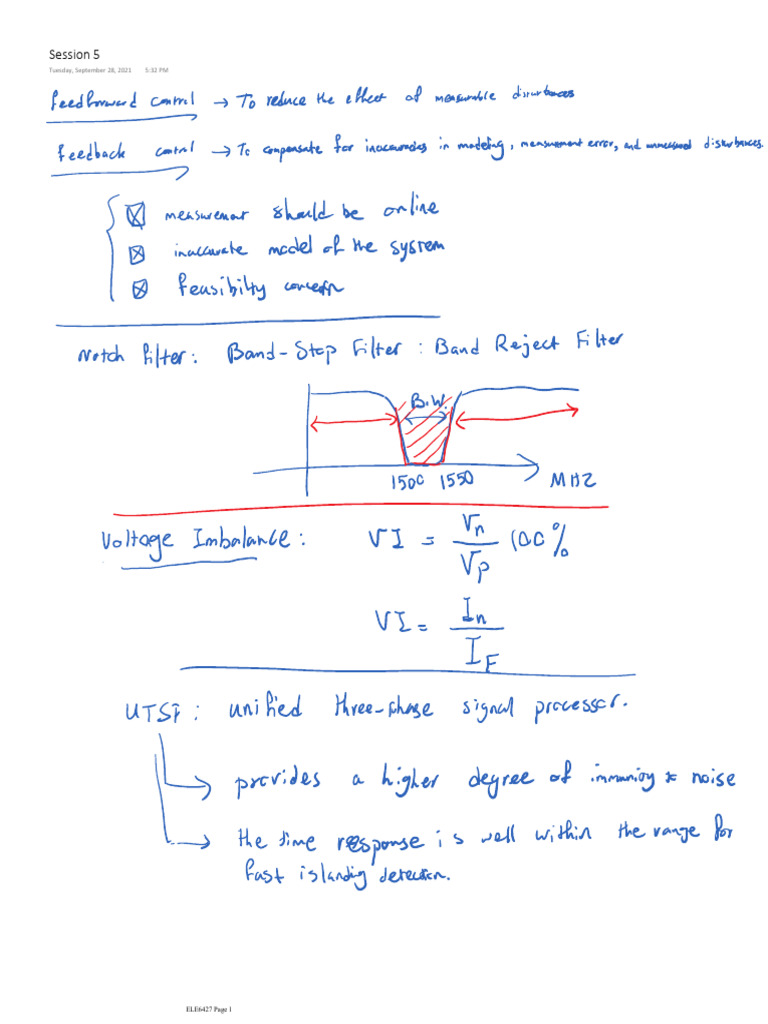 Session 5
Tuesday, September 28, 2021 5:32 PM
feedforward control → To reduce the effect of measurable disturbances
feedback control → To compensate for inaccuracies in modeling, measurement error, and unmeasured disturbances.
measurement should be online
inaccurate model of the system
feasibilty concern
Notch filter: Band-Stop Filter : Band Reject Filter
B.W.
1500 1550 MHZ
Voltage Imbalance: VI = Vn / Vp 100%
VI = In / IF
UTSP: unified three-phase signal processor.
provides a higher degree of immunity to noise
the time response is well within the range for
fast islanding detection.
ELE6427 Page 1